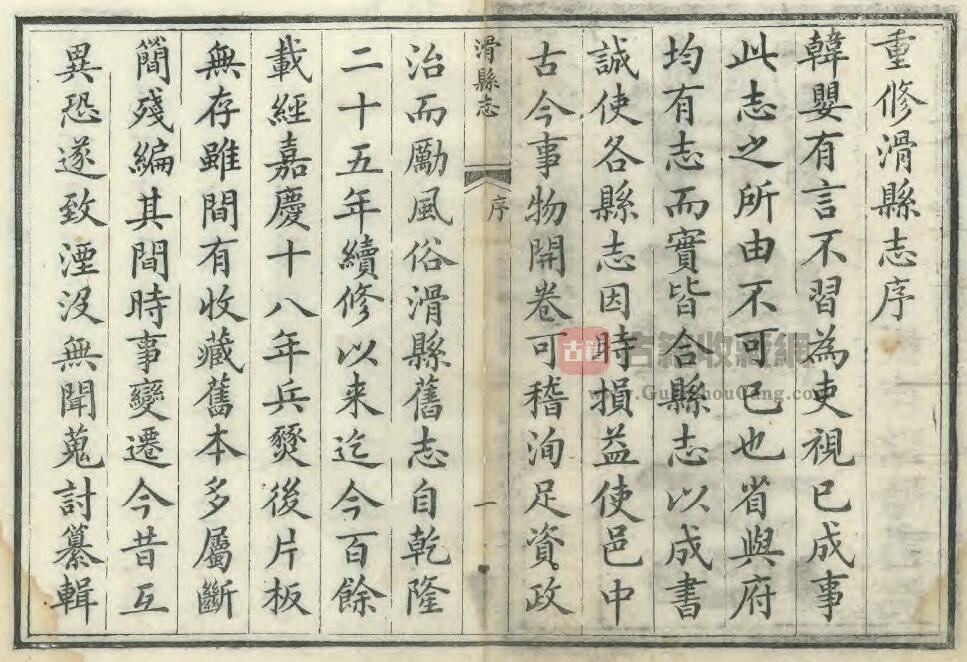 重修滑縣志序
韓嬰有言不習為吏視已成事
此志之所由不可已也省與府
均有志而實皆合縣志以成書
誠使各縣志因時損益使邑中
古今事物開卷可稽洵足資政
滑縣志
序
一
治而勵風俗滑縣舊志自乾隆
二十五年續修以来迄今百餘
載經嘉慶十八年兵燹後片板
無存雖間有收藏舊本多屬斷
簡殘編其間時事變遷今昔互
異恐遂致湮没無聞蒐討纂輯
古籍
古籍收藏網